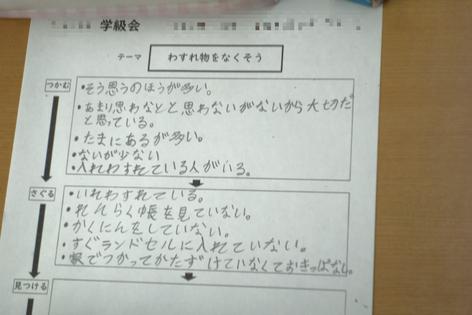 学級会
テーマ わすれ物をなくそう
つかむ
・そう思うのほうが多い。
・あまり思わなとと思わないがないから大切だ
と思っている。
・たまにあるが多い。
・ないが少ない
・入れわすれている人がいる。
さぐる
・いれわすれている。
・れんらく帳を見ていない。
・かくにんをしていない。
・すぐランドセルに入れていない。
・家でつかってかたずけていなくておきっぱなし。
見つける